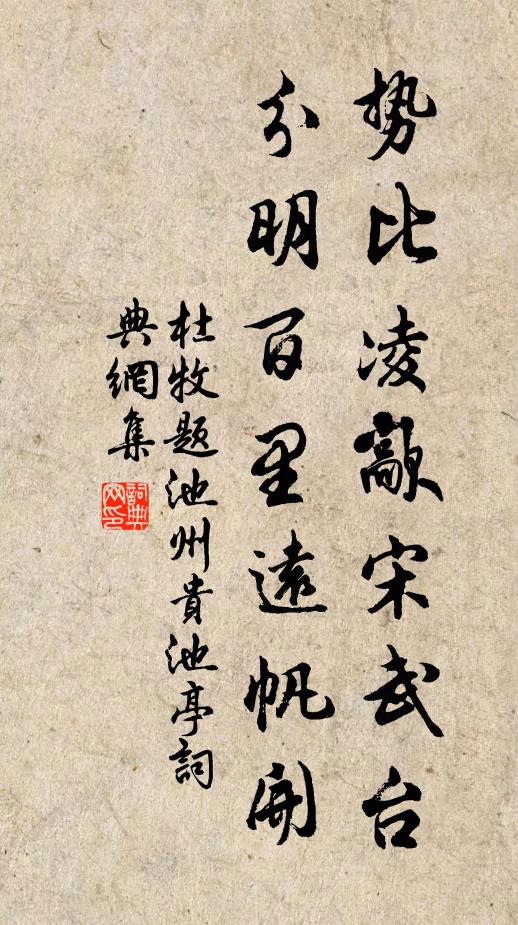 势比凌歊宋武台
分明百里遠帆開
杜牧题池州貴池亭詞
典網集
詞典
网印